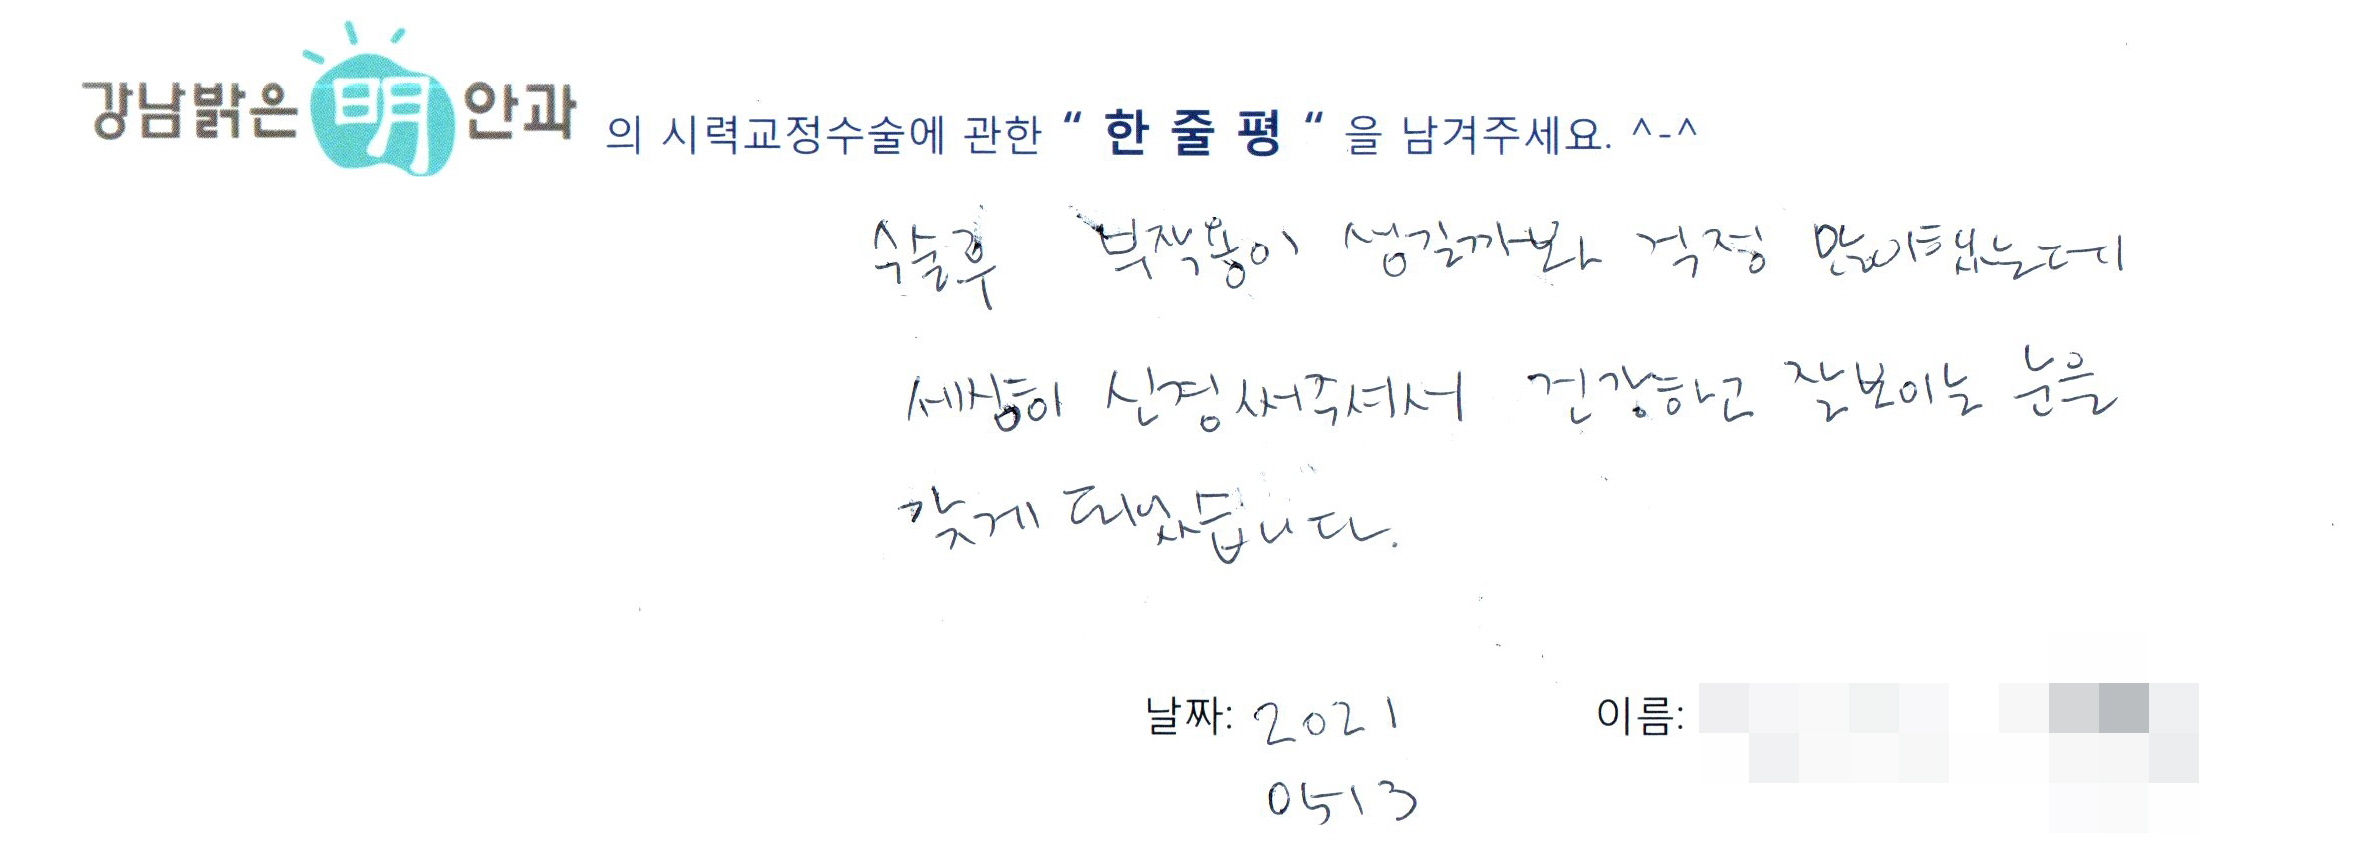 강남밝은明안과 의 시력교정수술에 관한 “ 한 줄 평 “ 을 남겨주세요. ^-^
수술후 부작용이 생길까봐 걱정 많이했는데
세심히 신경써주셔서 건강하고 잘보이는 눈을
갖게 되었습니다.
날짜: 2021 이름:
0513